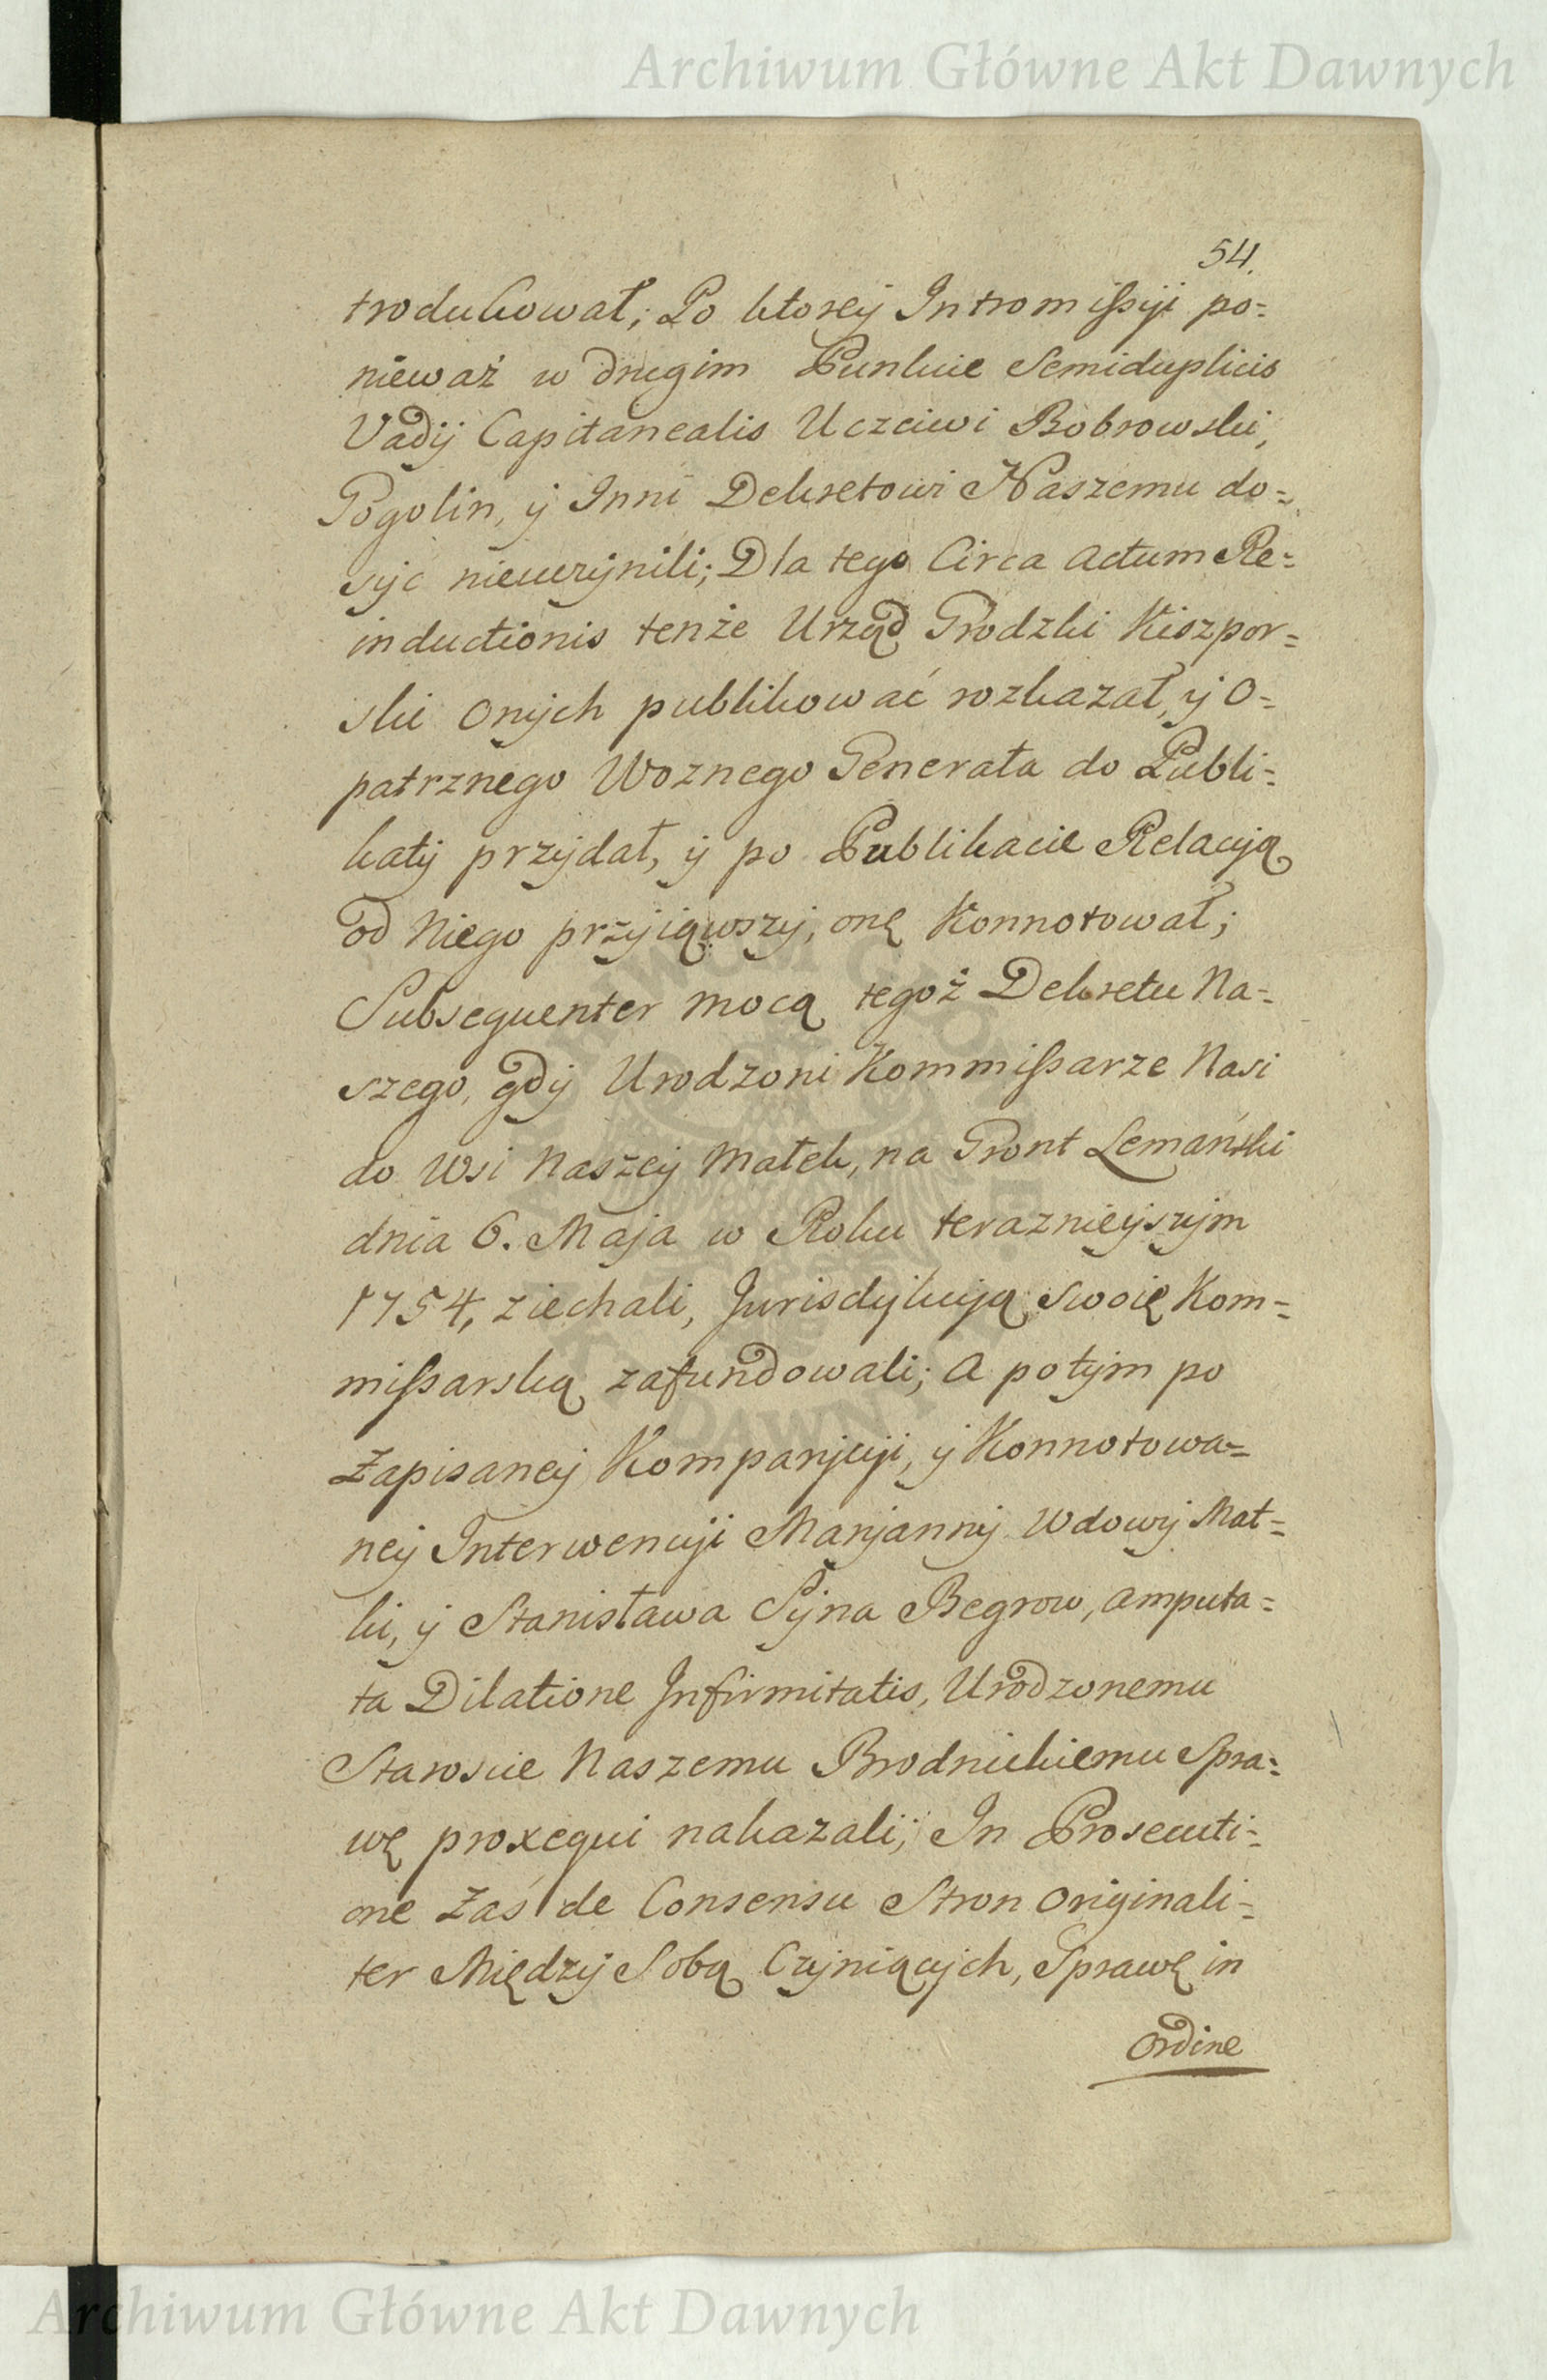 Archiwum Główne Akt Dawnych
54.
trodukował; Po ktorey Intromissyi po=
nieważ w drugim Punkcie Semiduplicis
Vadij Capitanealis Uczciwi Bobrowski,
Pogolin, y Inni Dekretowi Naszemu do=
syc nieuczynili; Dla tego Circa Actum Re=
inductionis tenże Urząd Grodzki Kiszpor=
ski onych publikować rozkazał, y O=
patrznego Woznego Generała do Publi=
katy przydał, y po Publikacie Relacyą
od Niego przyiąwszy, onę Konnotował;
Subsequenter mocą tegoż Dekretu Na=
szego, gdy Urodzoni Kommissarze Nasi
do Wsi Naszey Małek, na Gront Lemański
dnia 6. Maja w Roku terazniejszym
1754, ziechali, Jurisdykcyą swoię Kom=
missarską zafundowali; A potym po
Zapisaney Kompanycyi, y Konnotowa=
ney Interwencyi Maryanny Wdowy Mat=
ki, y Stanisława Syna Begrow, amputa=
ta Dilatione Infirmitatis, Urodzonemu
Staroscie Naszemu Brodnickiemu Spra=
wę proxequi nakazali; In Prosecuti=
one Zaś de Consensu Stron originali=
ter Między Sobą Czyniących, Sprawę in
Ordine
Archiwum Główne Akt Dawnych